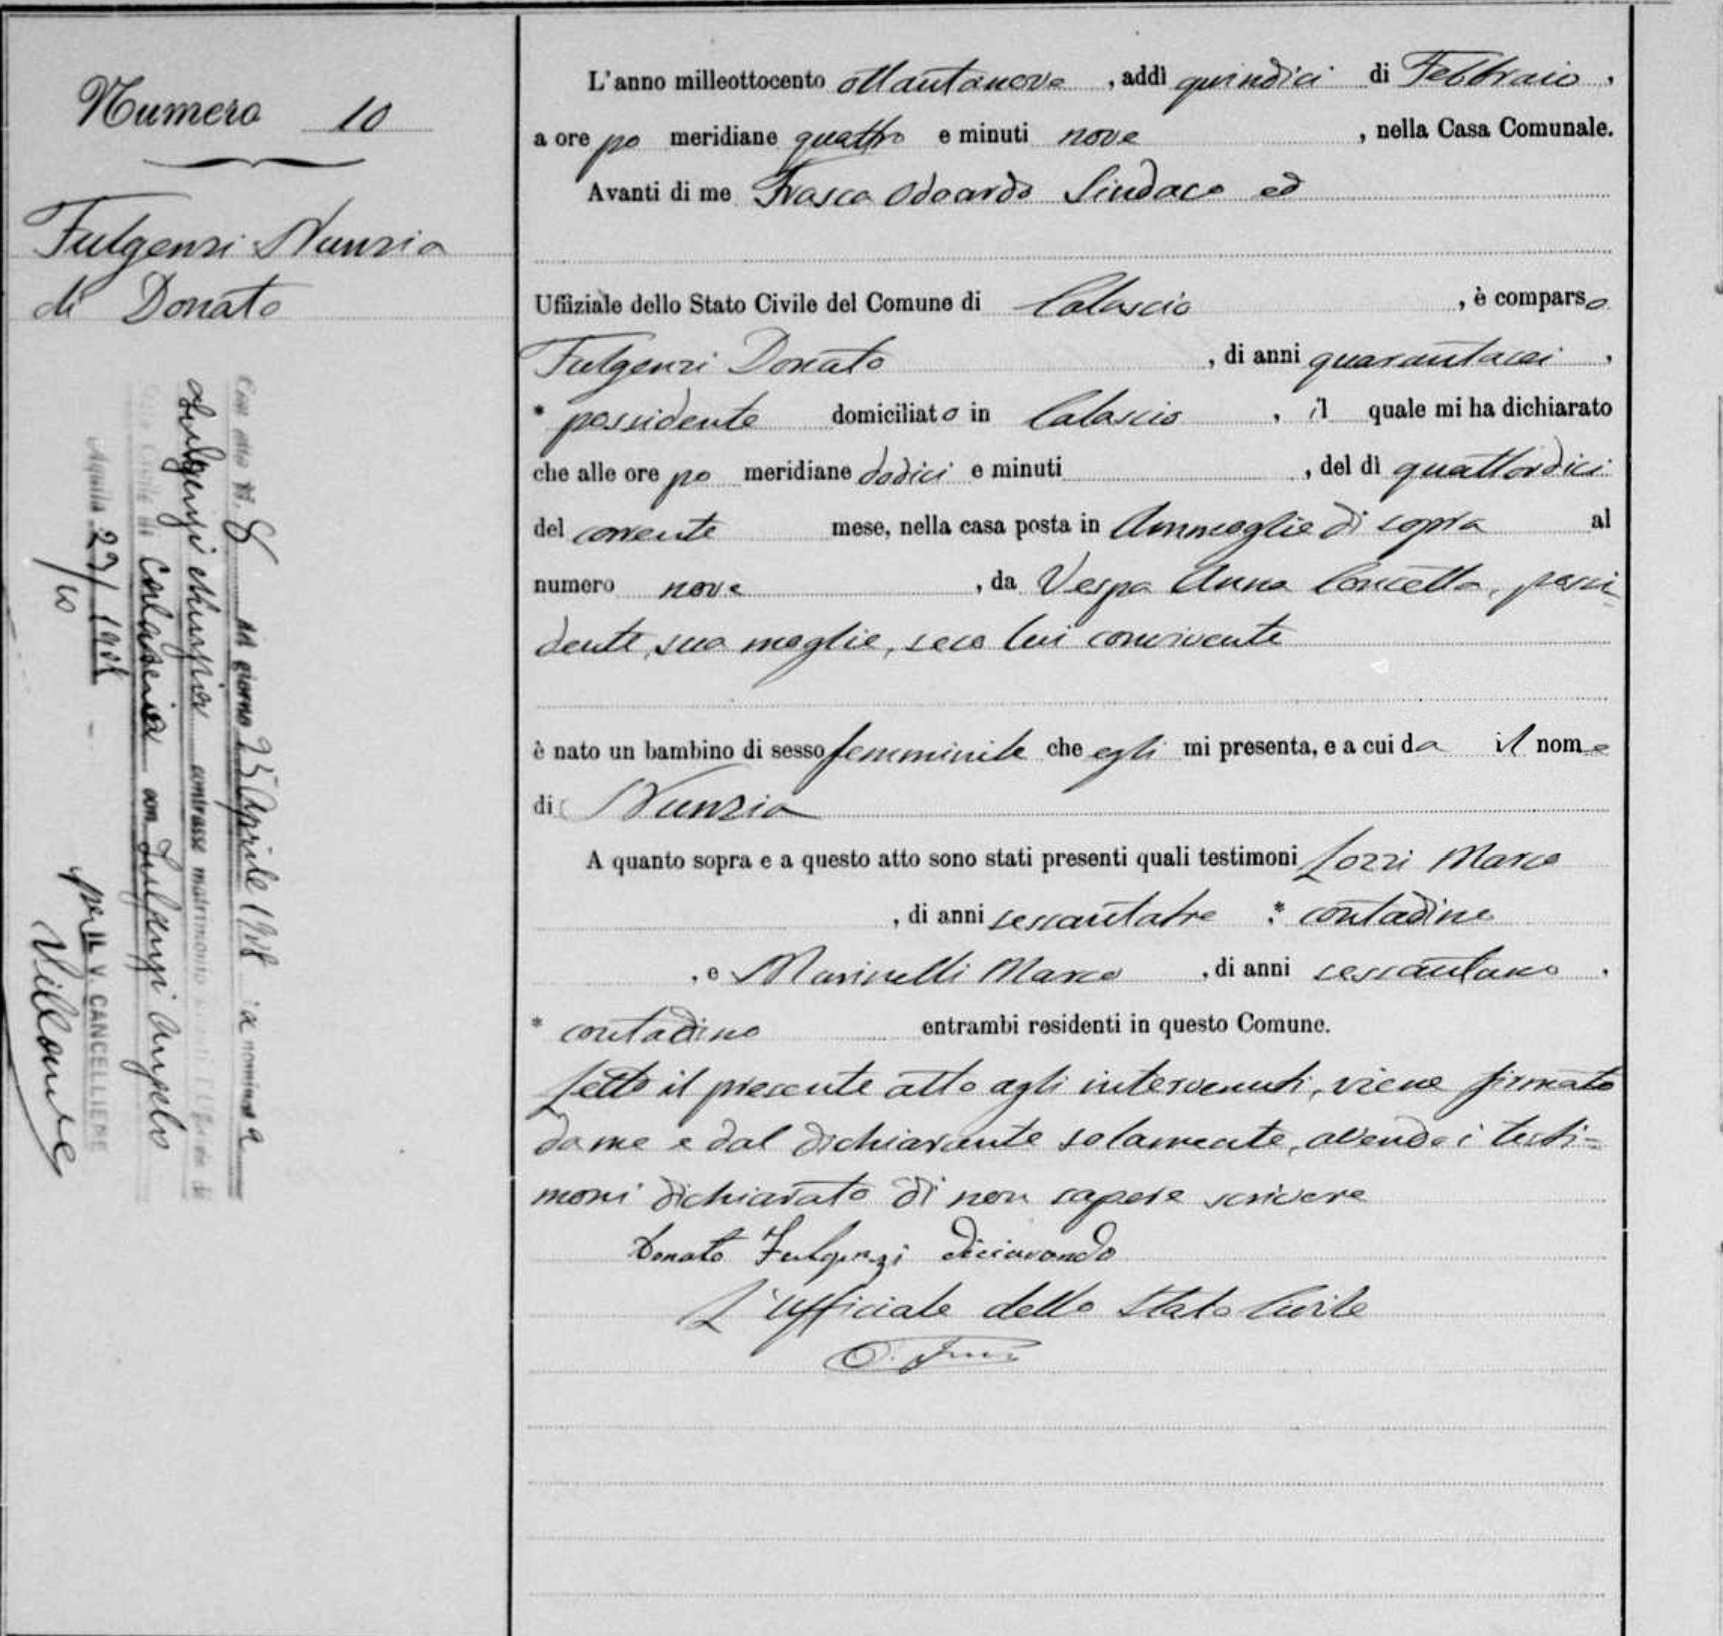 Numero 10
Fulgenzi Nunzia
di Donato
Con atto N. 8 in giorno 25 Aprile 1928 la nominata
Fulgenzi Nunzia contrasse matrimonio
Stato Civile di Calascio con Fulgenzi Angelo
Aquila 23/10 per IL V. CANCELLIERE
L'anno milleottocento ottantanove, addì quindici di Febbraio,
a ore po meridiane quattro e minuti nove, nella Casa Comunale.
Avanti di me Frasca Odoardo Sindaco ed
Uffiziale dello Stato Civile del Comune di Calascio, è comparso
Fulgenzi Donato, di anni quarantasei,
* possidente domiciliato in Calascio, il quale mi ha dichiarato
che alle ore po meridiane dodici e minuti, del dì quattordici
del corrente mese, nella casa posta in di sopra al
numero nove, da Vespa Anna Concetta, possi-
dente, sua moglie, seco lui convivente
è nato un bambino di sesso femminile che egli mi presenta, e a cui da il nome
di Nunzia
A quanto sopra e a questo atto sono stati presenti quali testimoni Lozzi Marco
, di anni sessantatre * contadino
, e Marinelli Marco, di anni sessantuno,
* contadino entrambi residenti in questo Comune.
Letto il presente atto agli intervenuti, viene firmato
da me e dal dichiarante solamente, avendo i testi=
moni dichiarato di non sapere scrivere
Donato Fulgenzi
L'ufficiale dello Stato Civile